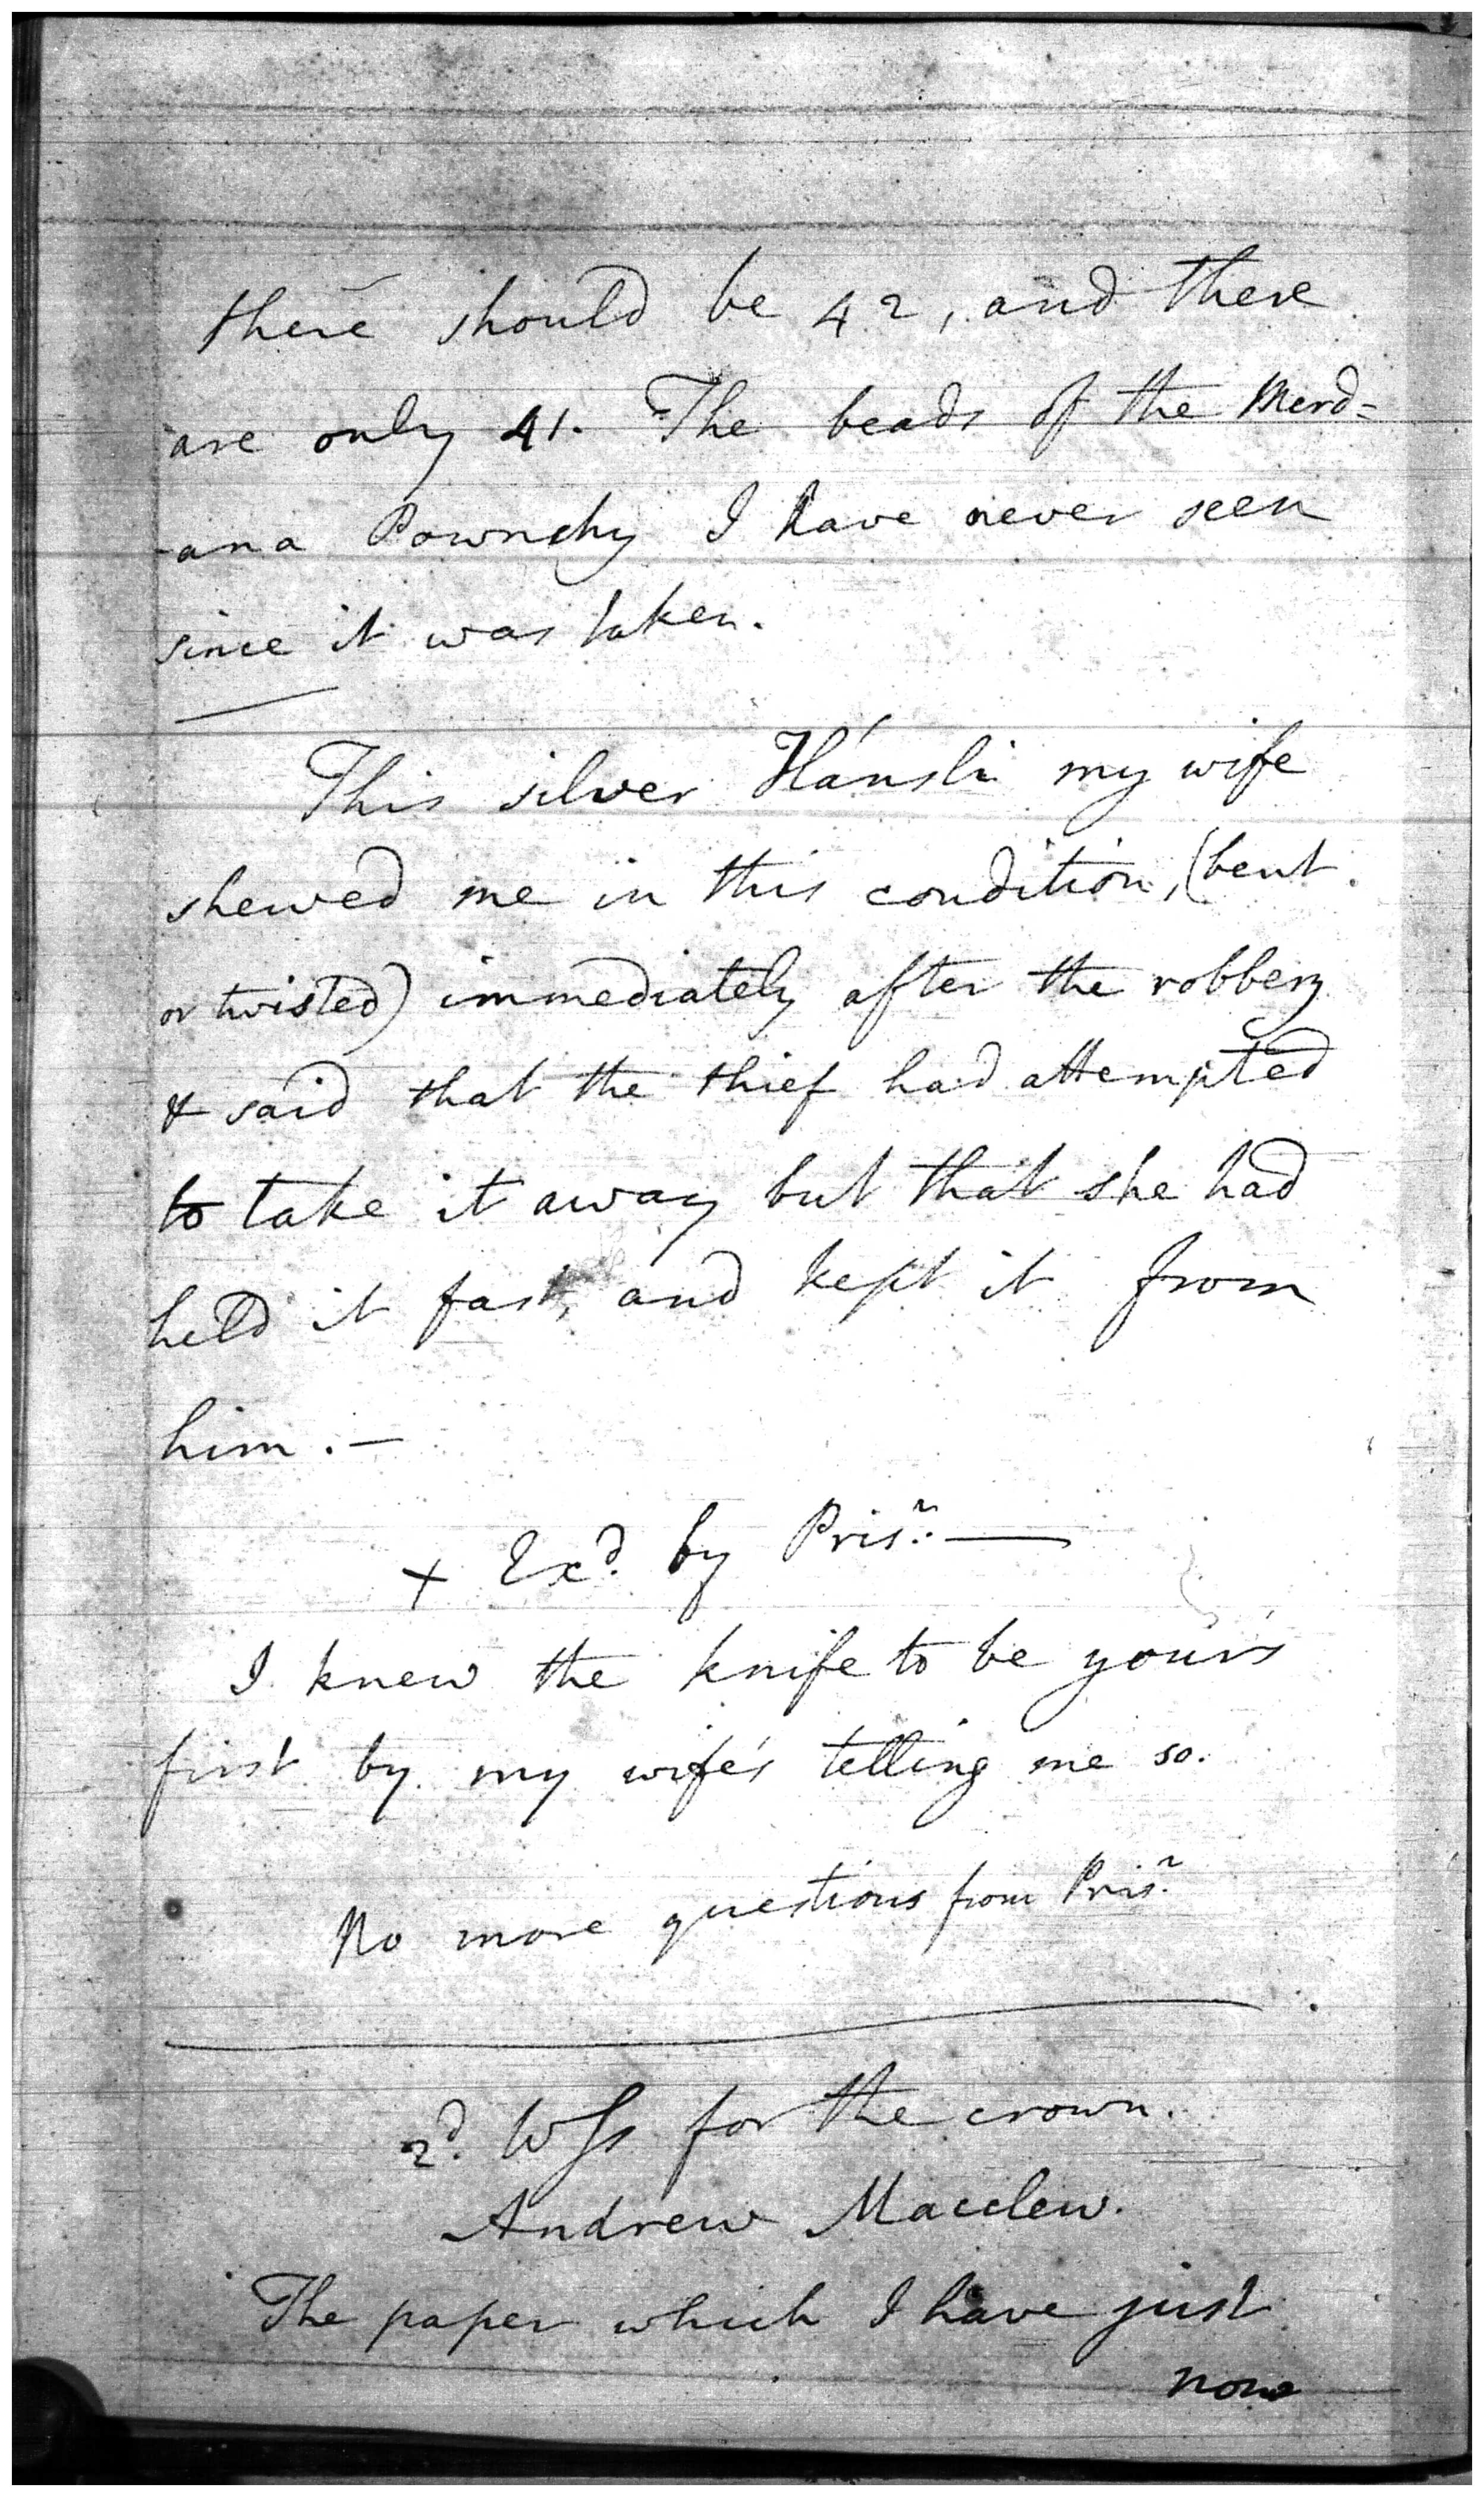 there should be 42, and there
are only 41. The beads of the Merd=
-ana Pownchy I have never seen
since it was taken.
This silver Hánsli my wife
shewed me in this condition, (bent
or twisted) immediately after the robbery
& said that the thief had attempted
to take it away but that she had
held it fast, and kept it from
him. —
+ Exd. by Prisr. —
I knew the knife to be yours
first by my wife's telling me so.
No more questions from Prisr.
2d. Wss for the crown.
Andrew Macclew.
The paper which I have just
now